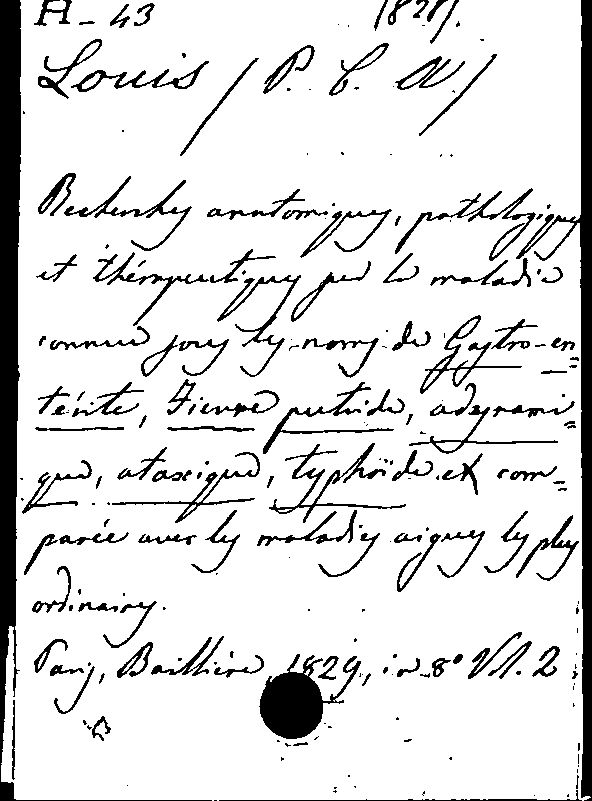 H - 43 1829.
Louis (P. C. A)
Recherches anatomiques, pathologiques
et thérapeutiques sur la maladie
connue sous les noms de Gastro-en=
térite, Fièvre putride, adynami=
que, ataxique, typhoïde et com=
parée avec les maladies aigues les plus
ordinaires.
Paris, Baillière, 1829, in-8° Vol. 2